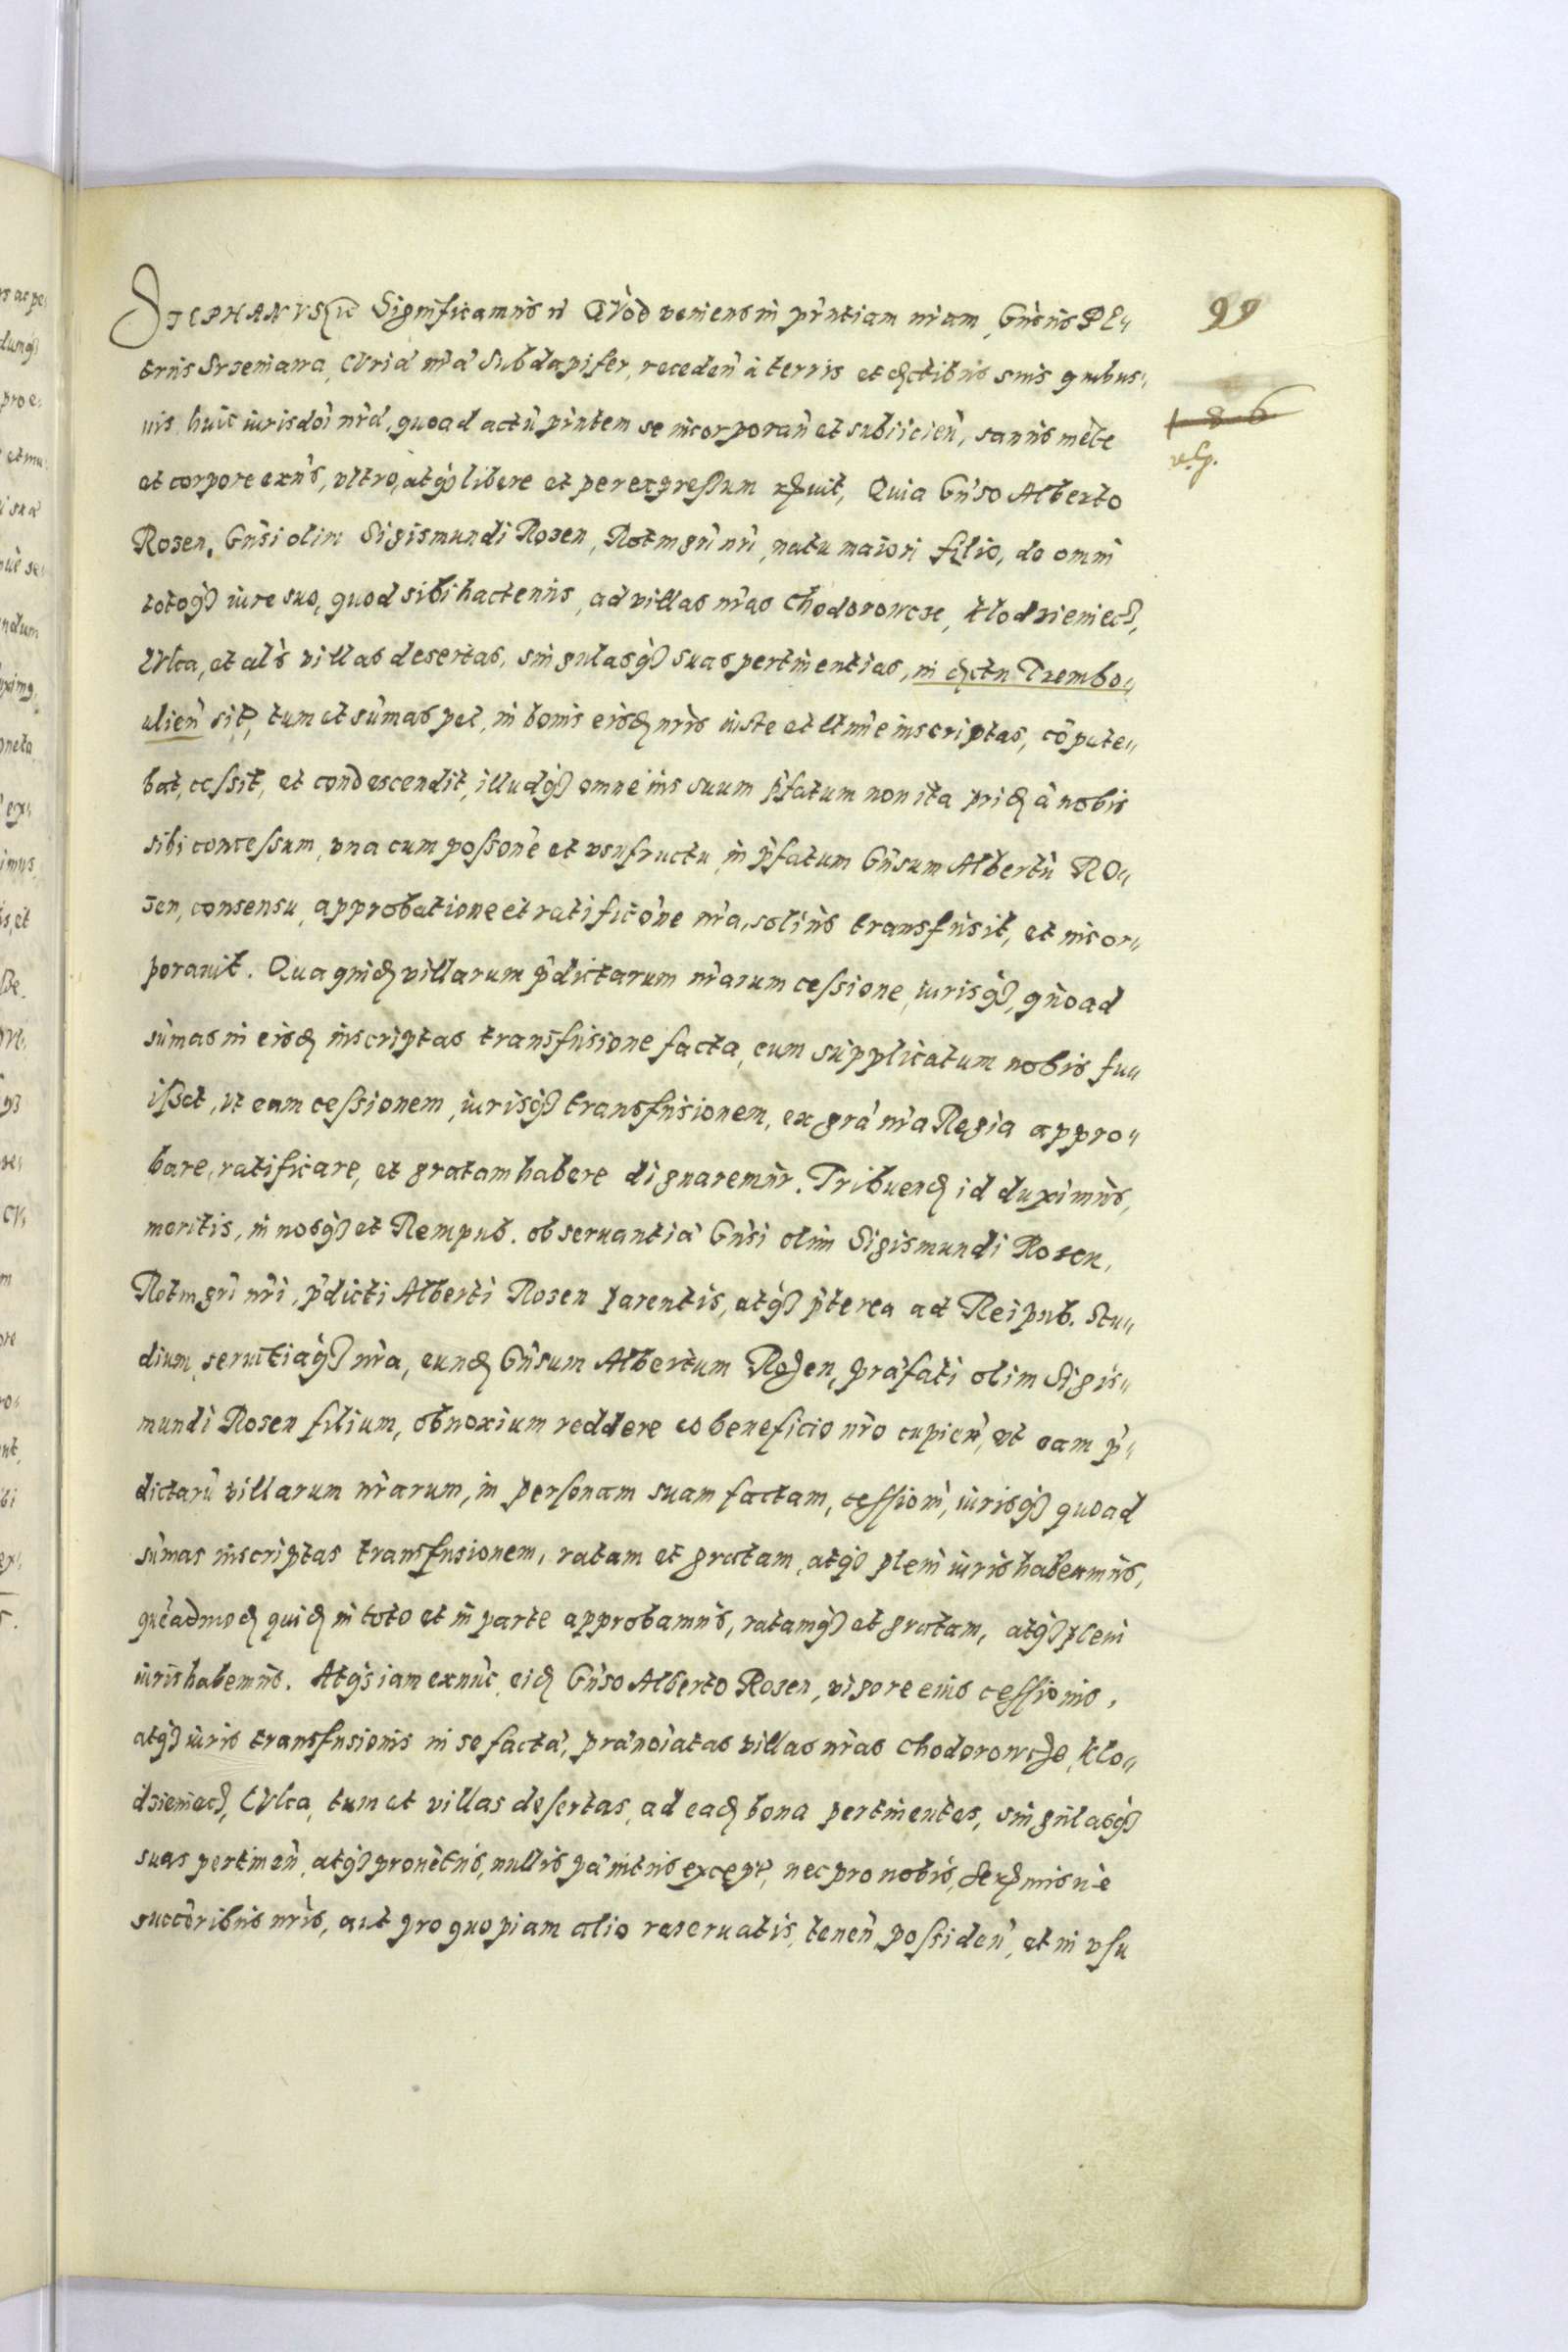 STEPHANVS etc Significamus etc QVod veniens in pñtiam nrãm, Gnsus PE„
trus Srzeniawa, CVriæ nræ Subdapifer, receden̄ à terris et dictibus suis quibus„
uis, huic iurisdoi nræ, quoad actũ pñtem se incorporañ et subiicieñ, sanus mẽte
et corpore exñs, vltro, atq3 libere et per expressum rec. uit, Quia Gnso Alberto
Rosen, Gnsi olim Sigismundi Rosen, Rotmgri nri, natu maiori filio, de omni
totoq3 iure suo, quod sibi hactenus, ad villas nras Chodorowcze, Klodzieniecz,
IVlca, et aliis villas desertas, singulasq3 suas pertinentias, in dictu Trembo„
ulien̄ sit., tum et sũmas pec. in bonis eisd. nris iuste et ltmie inscriptas, cõpete„
bat, cessit, et condescendit, illudq3 omne ius suum p̃fatum non ita prid. à nobis
sibi concessum, vna cum possone et vsufructu in p̃fatum Gnsum Albertũ RO„
sen, consensu, approbatione et ratificõne nra, solius transfusit, et incor„
porauit. Qua quid. villarum p̃dictarum nrarum cessione, iurisq3, quoad
sũmas in eisd. inscriptas transfusione facta, cum supplicatum nobis fu„
isset, vt eam cessionem, iurisq3 transfusionem, ex gra nra Regia appro„
bare, ratificare, et gratam habere dignaremur. Tribuend. id duximus,
meritis, in nosq3 et Rempub. obseruantiæ Gnsi olim Sigismundi Rosen,
Rotmgri nri, p̃dicti Alberti Rosen parentis, atq3 p̃terea ad Reipub. stu„
dium, seruitiaq3 nra, eund. Gnsum Albertum Rosen, præfati olim Sigis„
mundi Rosen filium, obnoxium reddere eo beneficio nro cupien̄, vt eam p̃„
dictarũ villarum nrarum, in personam suam factam, cessionẽ, iurisq3 quoad
sũmas inscriptas transfusionem, ratam et gratam, atq3 pleni iuris habeamus,
quẽadmod. quid. in toto et in parte approbamus, ratamq3 et gratam, atq3 pleni
iuris habemus. Atq3 iam exnũc, eid. Gnso Alberto Rosen, vigore eius cessionis,
atq3 iuris transfusionis in se factæ, prænoiatas villas nras Chodorowcze, Klo„
dzieniecz, IVlca, tum et villas desertas, ad ead. bona pertinentes, singulasq3
suas pertineñ, atq3 prouẽtus, nullis pænitus excep., nec pro nobis, Serẽmisuè
succõribus nris, aut pro quopiam alio reseruatis, teneñ, possideñ, et in vsu
99
186
v.g.